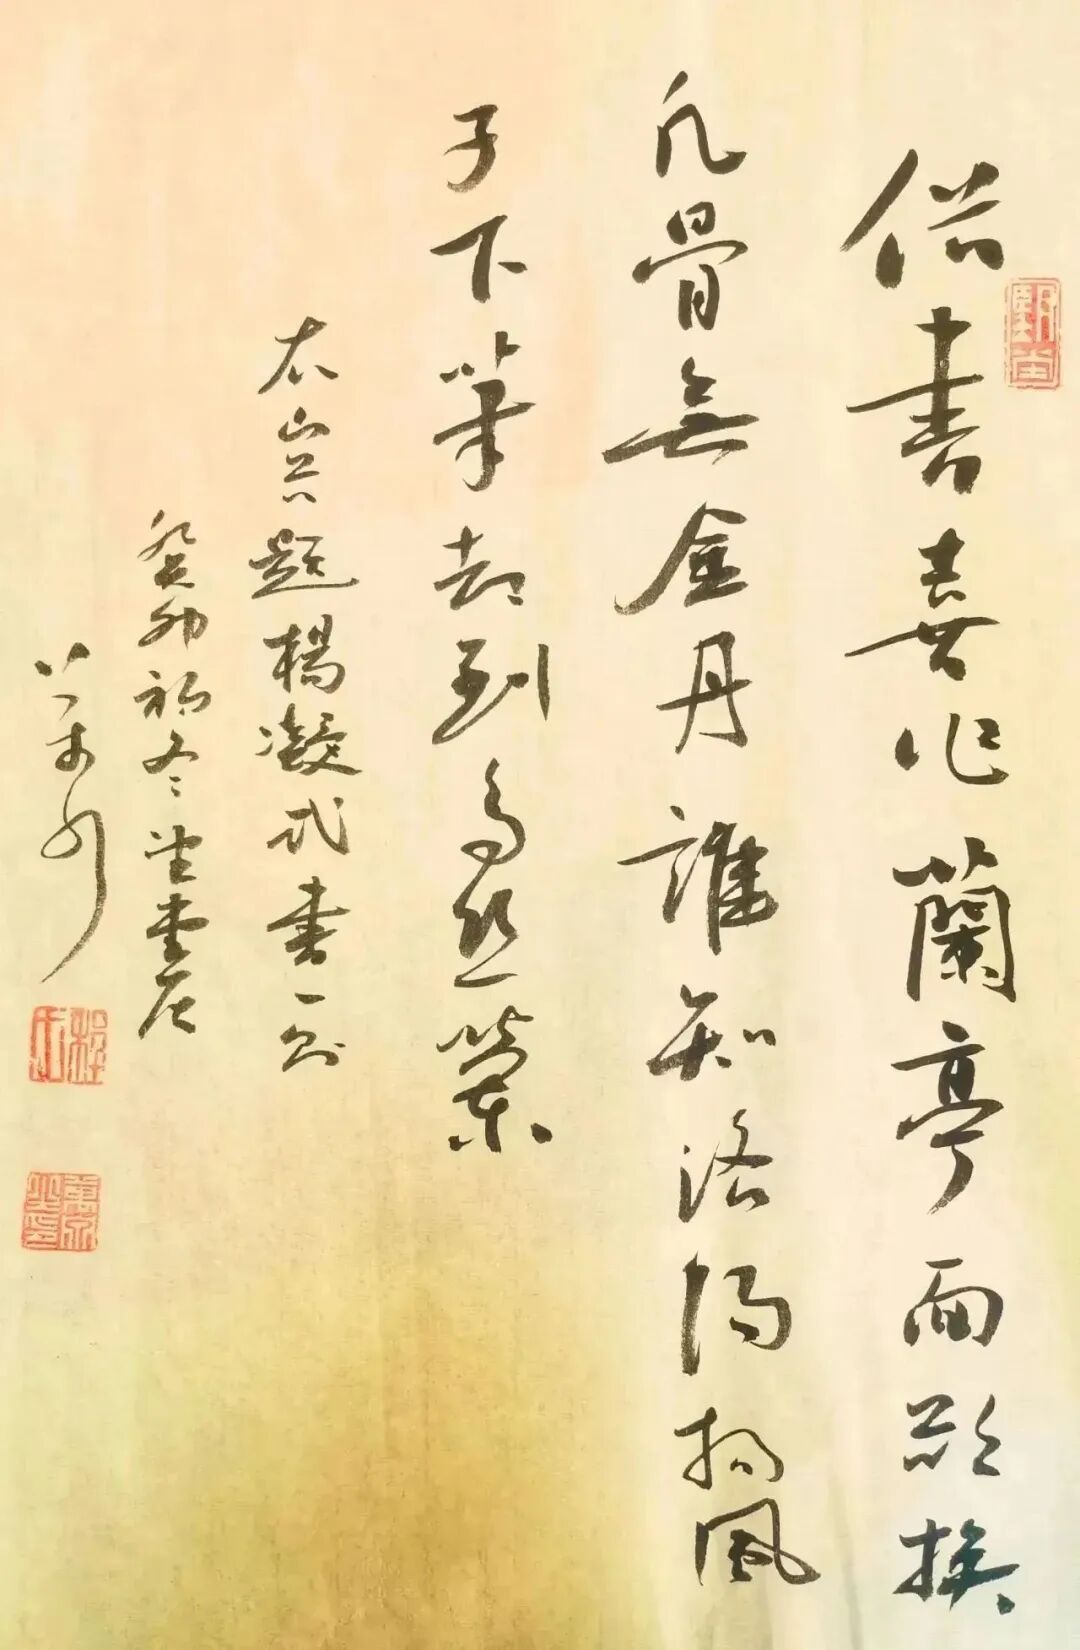 俗書喜作蘭亭面欲換
凡骨無金丹誰知洛陽楊風
子下筆却到烏絲蘭
右山谷題楊凝式書一則
癸卯初冬